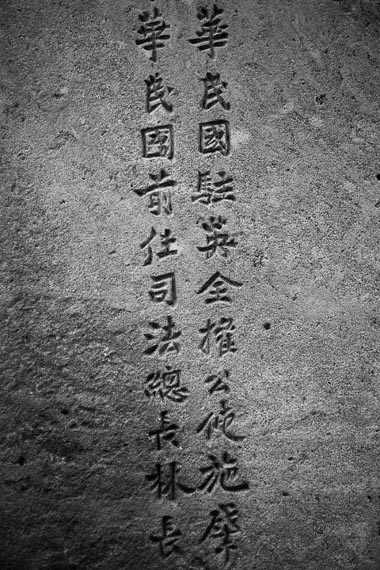 華民國駐英全權公使施肇
華民國前任司法總長林長